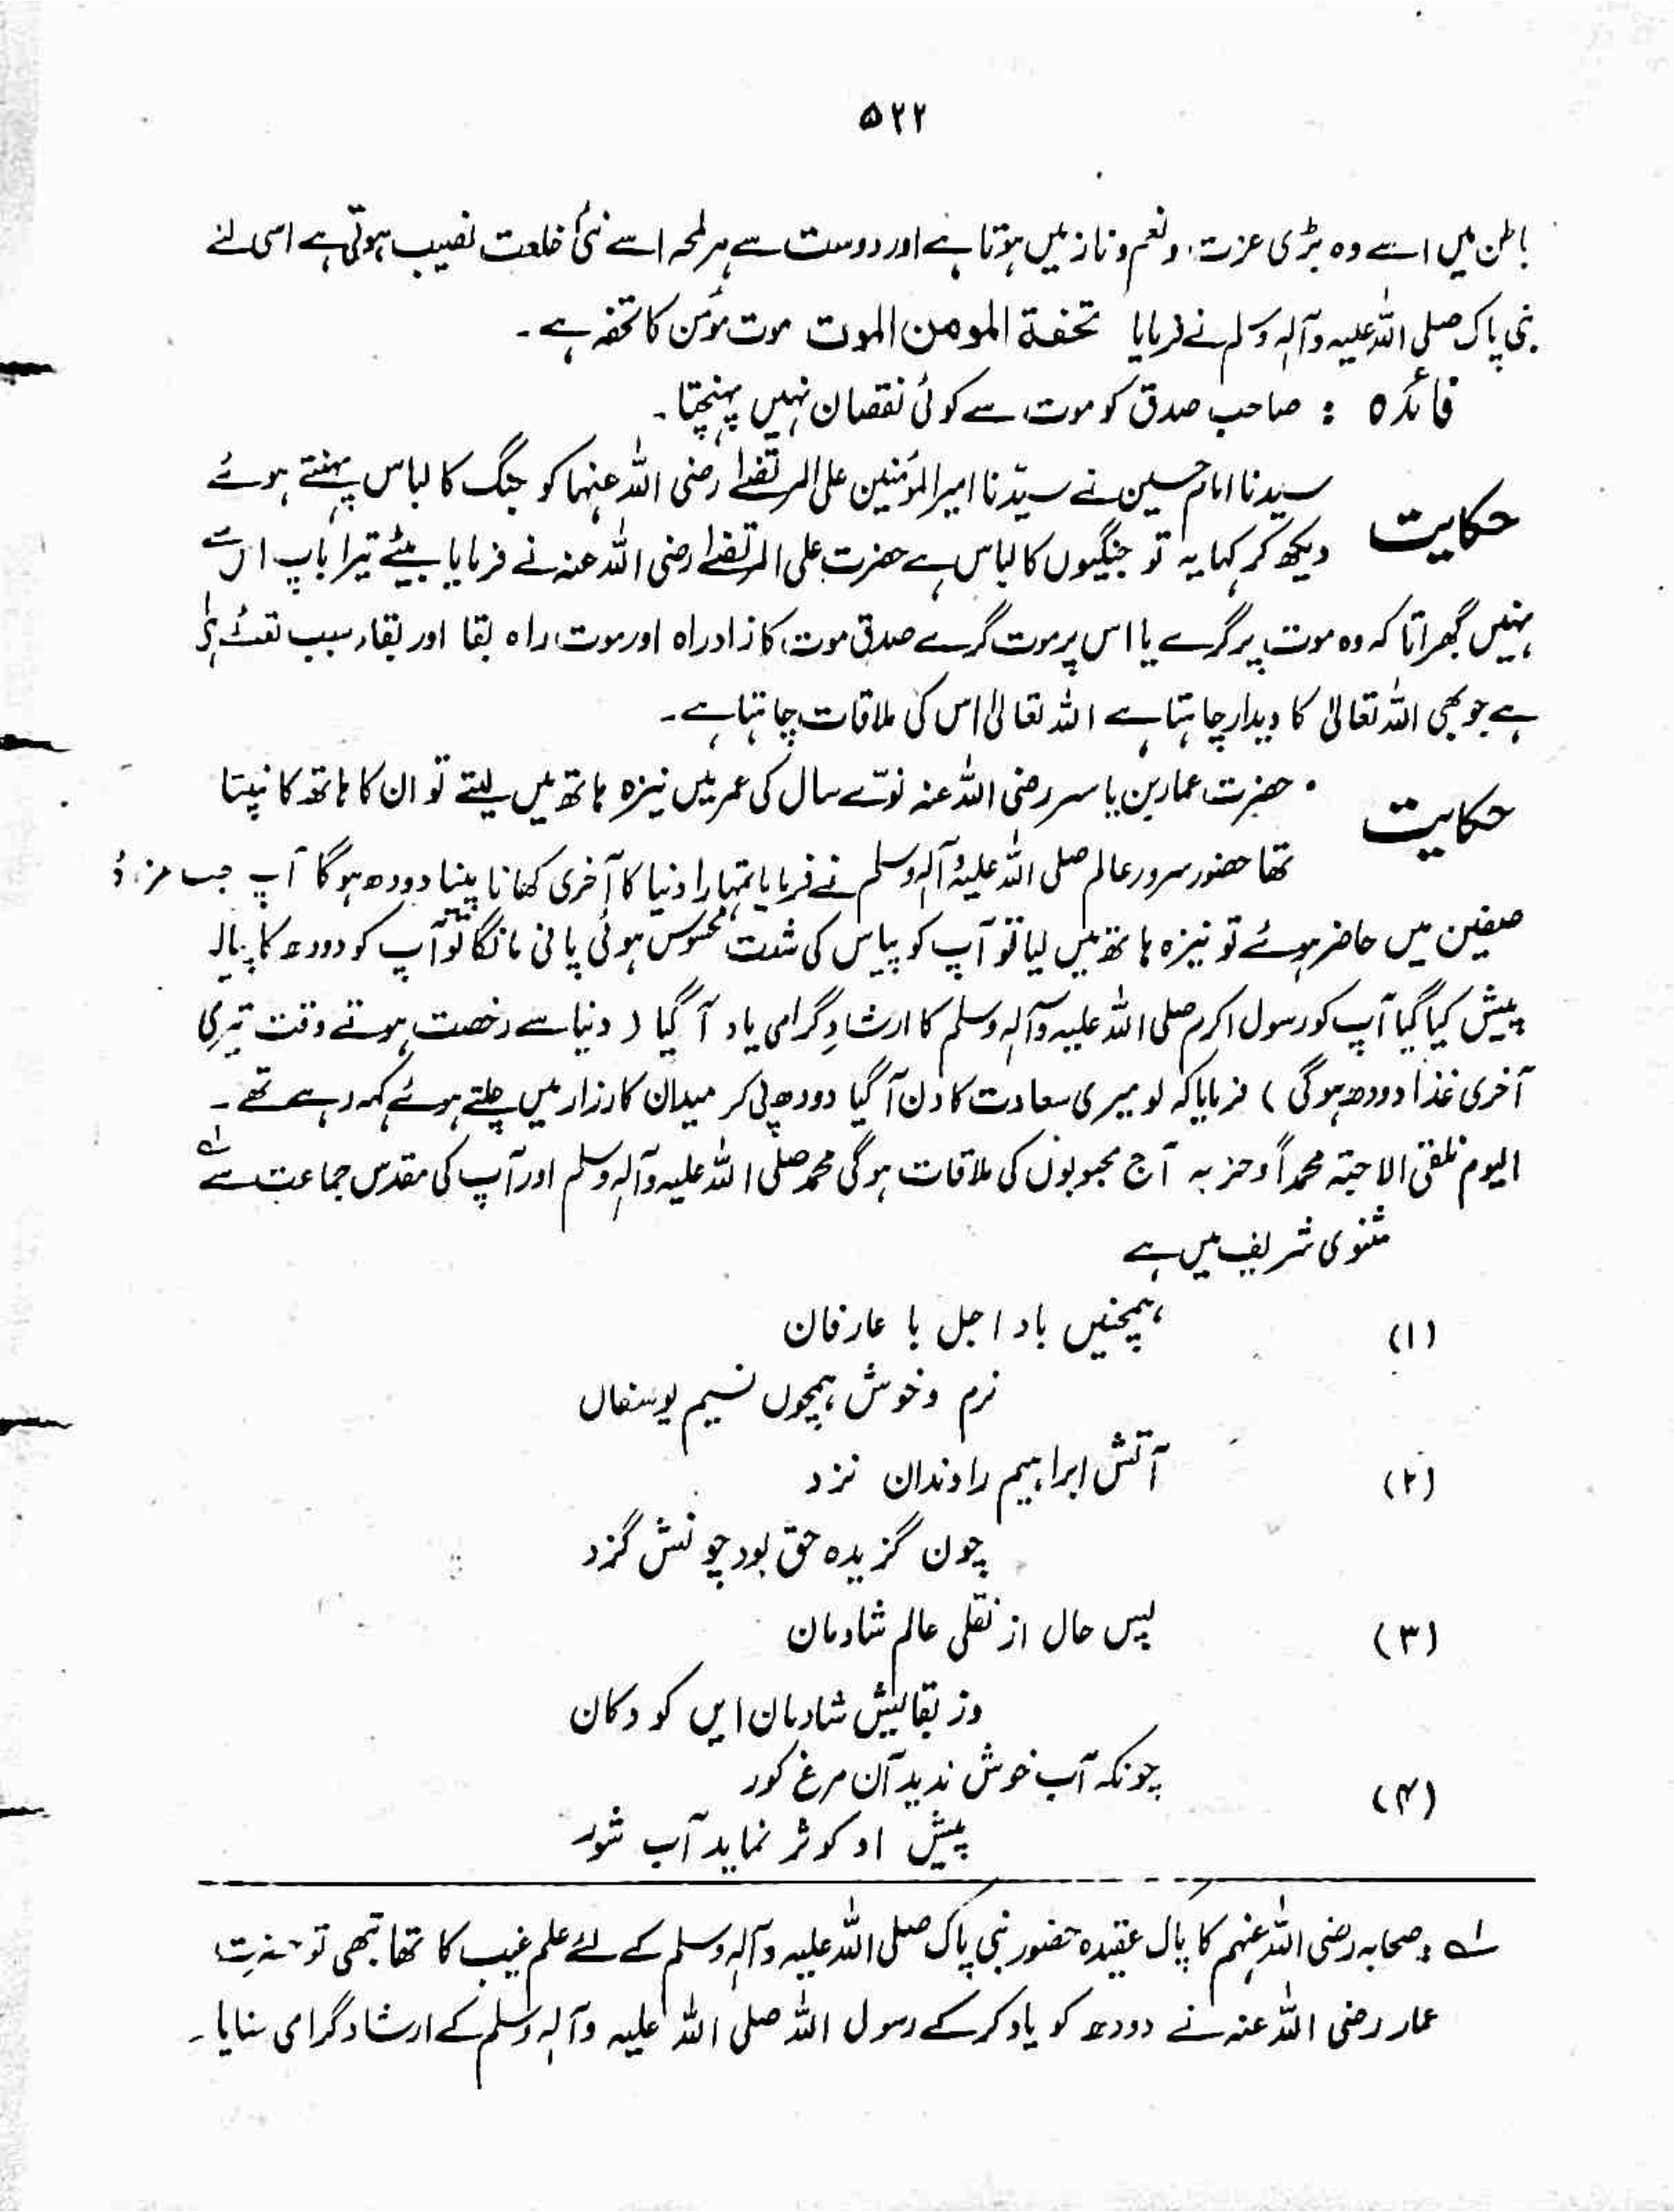 ۵۲۲
باطن میں اسے وہ بڑی عزت، و نعم و ناز میں ہوتا ہے اور دوست سے ہر لمحہ اسے نئی خلعت نصیب ہوتی ہے اسی لئے
نبی پاک صلی اللہ علیہ وآلہ وسلم نے فرمایا تحفة المومن الموت موت مؤمن کا تحفہ ہے۔
فائدہ : صاحب صدق کو موت سے کوئی نقصان نہیں پہنچتا۔
حکایت سیدنا امام حسین نے سیّدنا امیر المؤمنین علی المرتضٰے رضی اللہ عنہما کو جنگ کا لباس پہنتے ہوئے
دیکھ کر کہا یہ تو جنگیوں کا لباس ہے حضرت علی المرتضٰے رضی اللہ عنہ نے فرمایا بیٹے تیرا باپ اس سے
نہیں گھبراتا کہ وہ موت پر گرے یا اس پر موت گرے صدق موت کا زاد راہ اور موت راہ بقا اور بقاء سبب
ہے جو بھی اللہ تعالیٰ کا دیدار چاہتا ہے اللہ تعالیٰ اس کی ملاقات چاہتا ہے۔
حکایت حضرت عمار بن یاسر رضی اللہ عنہ نوّے سال کی عمر میں نیزہ ہاتھ میں لیتے تو ان کا ہاتھ کانپتا
تھا حضور سرور عالم صلی اللہ علیہ وآلہ وسلم نے فرمایا تمہارا دنیا کا آخری کھانا پینا دودھ ہوگا آپ جب
صفین میں حاضر ہوئے تو نیزہ ہاتھ میں لیا تو آپ کو پیاس کی شدت محسوس ہوئی پانی مانگا تو آپ کو دودھ کا پیالہ
پیش کیا گیا آپ کو رسول اکرم صلی اللہ علیہ وآلہ وسلم کا ارشادِ گرامی یاد آگیا ( دنیا سے رخصت ہوتے وقت تیری
آخری غذا دودھ ہوگی ) فرمایا کہ لو میری سعادت کا دن آگیا دودھ پی کر میدان کارزار میں چلتے ہوئے کہہ رہے تھے۔
الیوم نلقی الاحبتہ محمداً وحزبہ آج محبوبوں کی ملاقات ہوگی محمد صلی اللہ علیہ وآلہ وسلم اور آپ کی مقدس جماعت سے لہ
مثنوی شریف میں ہے
(۱) ہمچنیں باد اجل با عارفان
نرم و خوش ہمچوں نسیم یوسفاں
(۲) آتش ابراہیم را دندان نزد
چون گزیدہ حق بود چونش گزد
(۳) پس حال از نقلی عالم شادمان
وز بقایش شادمان ایں کودکان
(۴) چونکہ آب خوش ندید آن مرغ کور
پیش او کوثر نماید آب شور
لہ : صحابہ رضی اللہ عنہم کا پاک عقیدہ حضور نبی پاک صلی اللہ علیہ وآلہ وسلم کے لئے علم غیب کا تھا تبھی تو حضرت
عمار رضی اللہ عنہ نے دودھ کو یاد کر کے رسول اللہ صلی اللہ علیہ وآلہ وسلم کے ارشاد گرامی سنایا۔